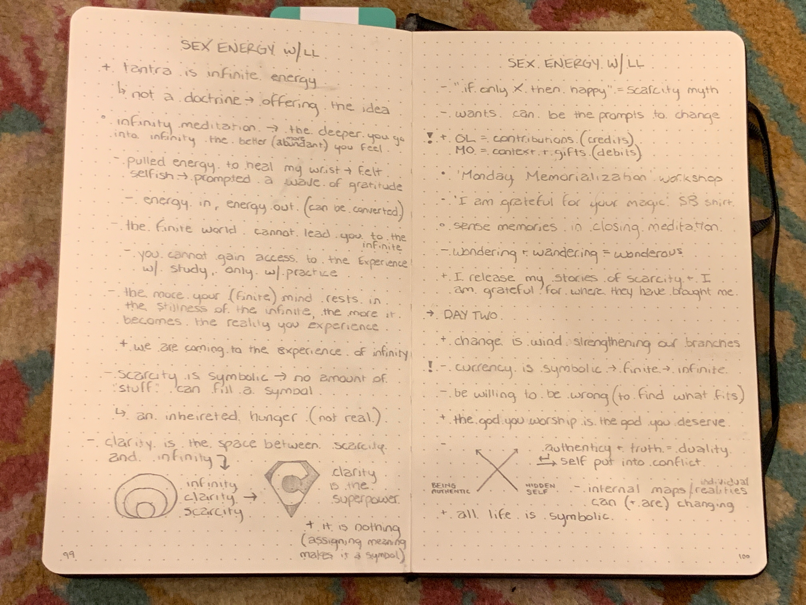 SEX ENERGY W/LL
+ tantra is infinite energy
↳ not a doctrine → offering the idea
° infinity meditation → the deeper you go
into infinity the better (more abundant) you feel.
- pulled energy to heal my wrist → felt
selfish → prompted a wave of gratitude
- energy in, energy out. (can be converted)
- the finite world cannot lead you to the
infinite
- you cannot gain access to the Experience
w/ study, only w/ practice
- the more your (finite) mind rests in
the stillness of the infinite, the more it
becomes the reality you experience
+ we are coming to the experience of infinity
- scarcity is symbolic → no amount of
"stuff" can fill a symbol
↳ an inheireted hunger (not real)
- clarity is the space between scarcity
and infinity
infinity
clarity →
scarcity
clarity
is the
superpower
+ it is nothing
(assigning meaning
makes it a symbol)
99
SEX ENERGY W/LL
- "if only X then happy" = scarcity myth
- wants can be the prompts to change
! + OL = contributions (credits)
MO = context + gifts (debits)
° 'Monday Memorialization' workshop
- 'I am grateful for your magic' SB shirt.
° sense memories in closing meditation.
- wondering + wandering = wonderous
+ I release my stories of scarcity + I
am grateful for where they have brought me.
→ DAY TWO
+ change is wind strengthening our branches
! - currency is symbolic → finite → infinite
- be willing to be wrong (to find what fits)
+ the god you worship is the god you deserve
- authenticy + truth = duality
↳ self put into conflict
BEING
AUTHENTIC
HIDDEN
SELF
- internal maps/individual realities
can (+ are) changing
+ all life is symbolic.
100